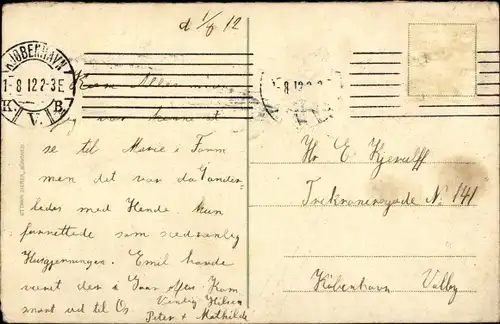 d 1/8 12
KJØBENHAVN
1-8 12 2-3E
K. V. B.
8 12 2-3
V
Kære
Jeg var henne at
se til Marie i Form
men det var da anderledes med Hende. hun
som sædvanlig
Husgjerningen. Emil havde
været der i Gaar Aftes. Kom
snart ud til Os Venlig Hilsen
Peter & Mathilde
Hr E Kjerulff
Trekronergade No 141
København Valby